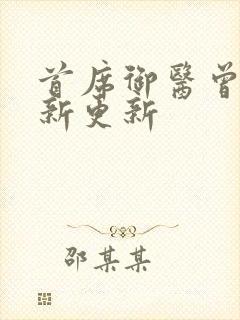 首席御醫曾
新更新
邵某某